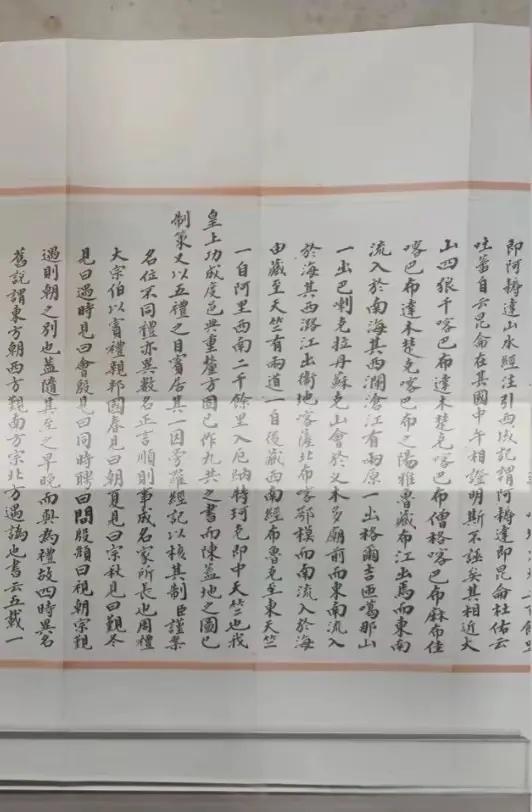 即阿耨達山水經注引西域記謂阿耨達即昆侖杜佑云
吐蕃自云昆侖在其國中午相證明斯不誣矣其相近大
山四狼千喀巴布達木楚克喀巴布僧格喀巴布麻布佳
喀巴布達木楚克喀巴布之陽雅魯藏布江出焉而東南
流入於南海其西瀾滄江有兩原一出格爾吉匝噶那山
一出巴喇克拉丹蘇克山會於叉木多廟前而東南流入
於海其西潞江出衞地喀薩北布喀鄂模而南流入於海
由藏至天竺有兩道一自後藏西南經布魯克至東天竺
一自阿里西南二千餘里入厄納特珂克即中天竺也我
皇上功成度邑典重釐方固已作九共之書而陳蓋地之圖已
制策又以五禮之目賓居其一因旁羅經記以核其制臣謹案
名位不同禮亦異數名正言順則事成名家所長也周禮
大宗伯以賓禮親邦國春見曰朝夏見曰宗秋見曰覲冬
見曰遇時見曰會殷見曰同時聘曰問殷頫曰視朝宗覲
遇則朝之別也蓋隨其至之早晚而與為禮故四時異名
舊說謂東方朝西方覲南方宗北方遇譌也書云五載一